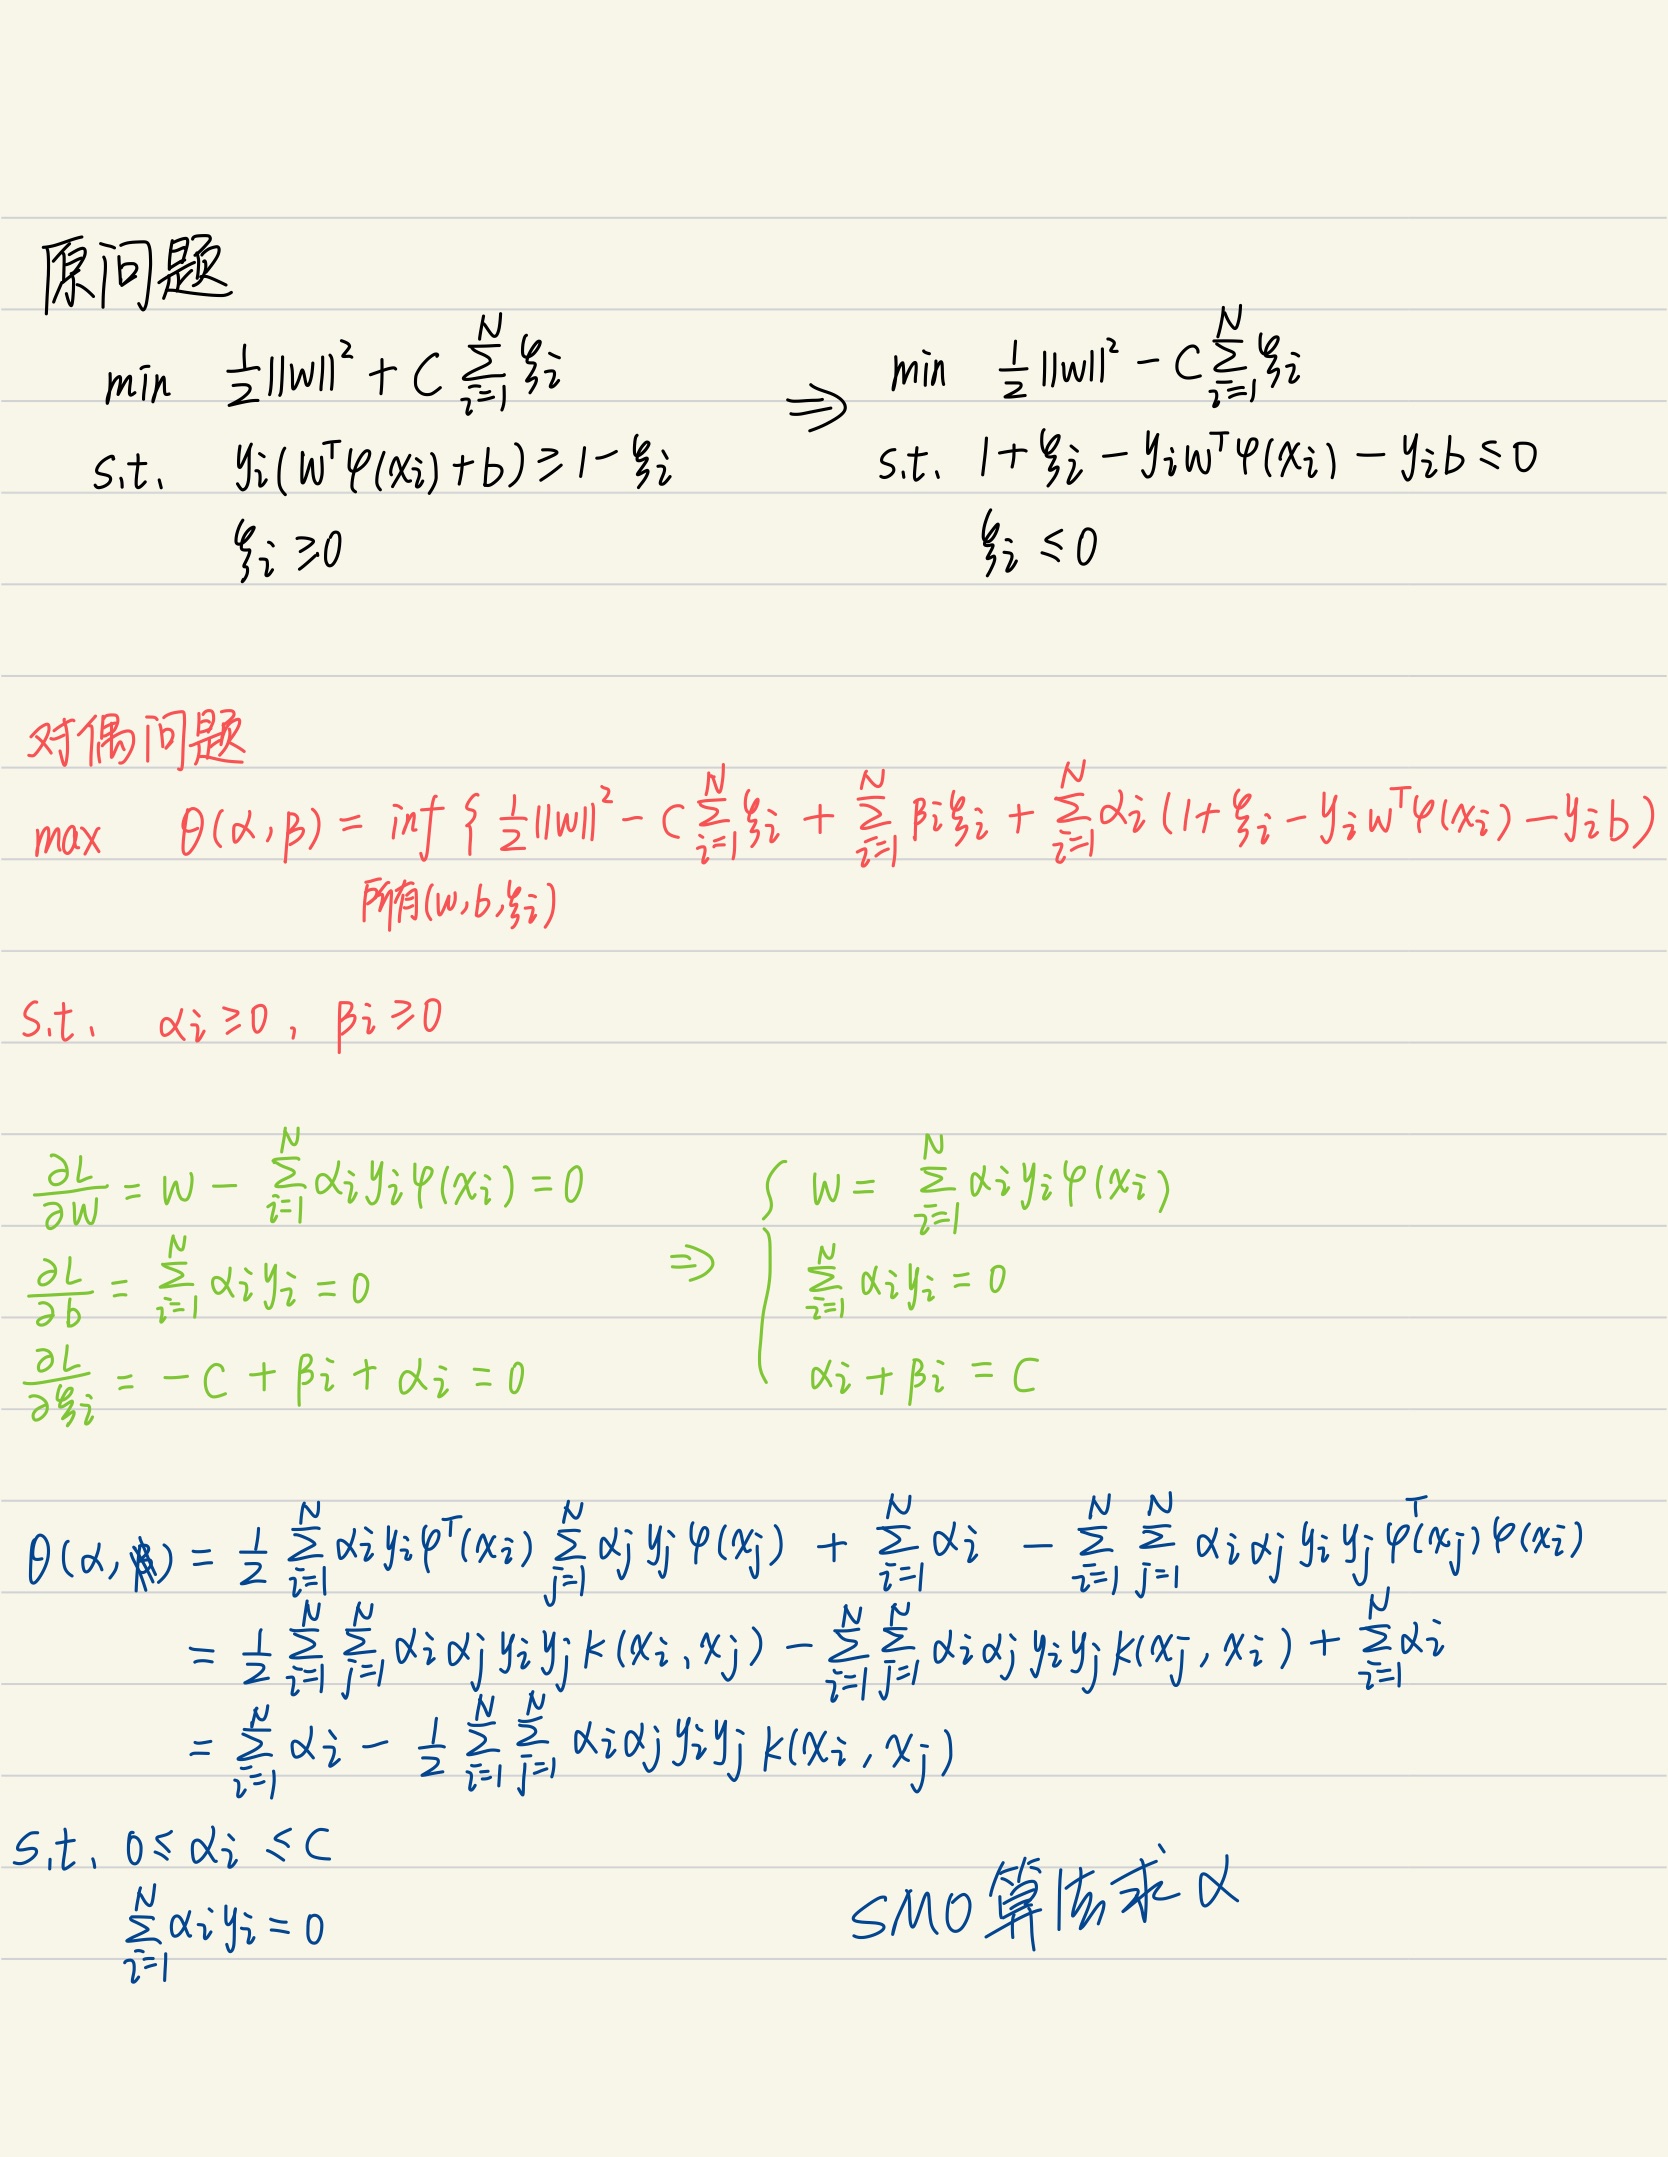 原问题
min ½||w||² + C Σ_{i=1}^{N} ξi ⇒ min ½||w||² − C Σ_{i=1}^{N} ξi
s.t. yi(wᵀφ(xi)+b) ≥ 1−ξi s.t. 1+ξi − yi wᵀφ(xi) − yi b ≤ 0
ξi ≥ 0 ξi ≤ 0
对偶问题
max θ(α,β) = inf { ½||w||² − C Σ_{i=1}^{N} ξi + Σ_{i=1}^{N} βiξi + Σ_{i=1}^{N} αi (1+ξi − yi wᵀφ(xi) − yi b)
所有(w,b,ξi)
s.t. αi ≥ 0, βi ≥ 0
∂L/∂w = w − Σ_{i=1}^{N} αi yi φ(xi) = 0 { w = Σ_{i=1}^{N} αi yi φ(xi)
∂L/∂b = Σ_{i=1}^{N} αi yi = 0 ⇒ Σ_{i=1}^{N} αi yi = 0
∂L/∂ξi = −C + βi + αi = 0 αi + βi = C
θ(α, ) = ½ Σ_{i=1}^{N} αi yi φᵀ(xi) Σ_{j=1}^{N} αj yj φ(xj) + Σ_{i=1}^{N} αi − Σ_{i=1}^{N} Σ_{j=1}^{N} αi αj yi yj φᵀ(xj) φ(xi)
= ½ Σ_{i=1}^{N} Σ_{j=1}^{N} αi αj yi yj k(xi, xj) − Σ_{i=1}^{N} Σ_{j=1}^{N} αi αj yi yj k(xj, xi) + Σ_{i=1}^{N} αi
= Σ_{i=1}^{N} αi − ½ Σ_{i=1}^{N} Σ_{j=1}^{N} αi αj yi yj k(xi, xj)
s.t. 0 ≤ αi ≤ C
Σ_{i=1}^{N} αi yi = 0
SMO算法求α